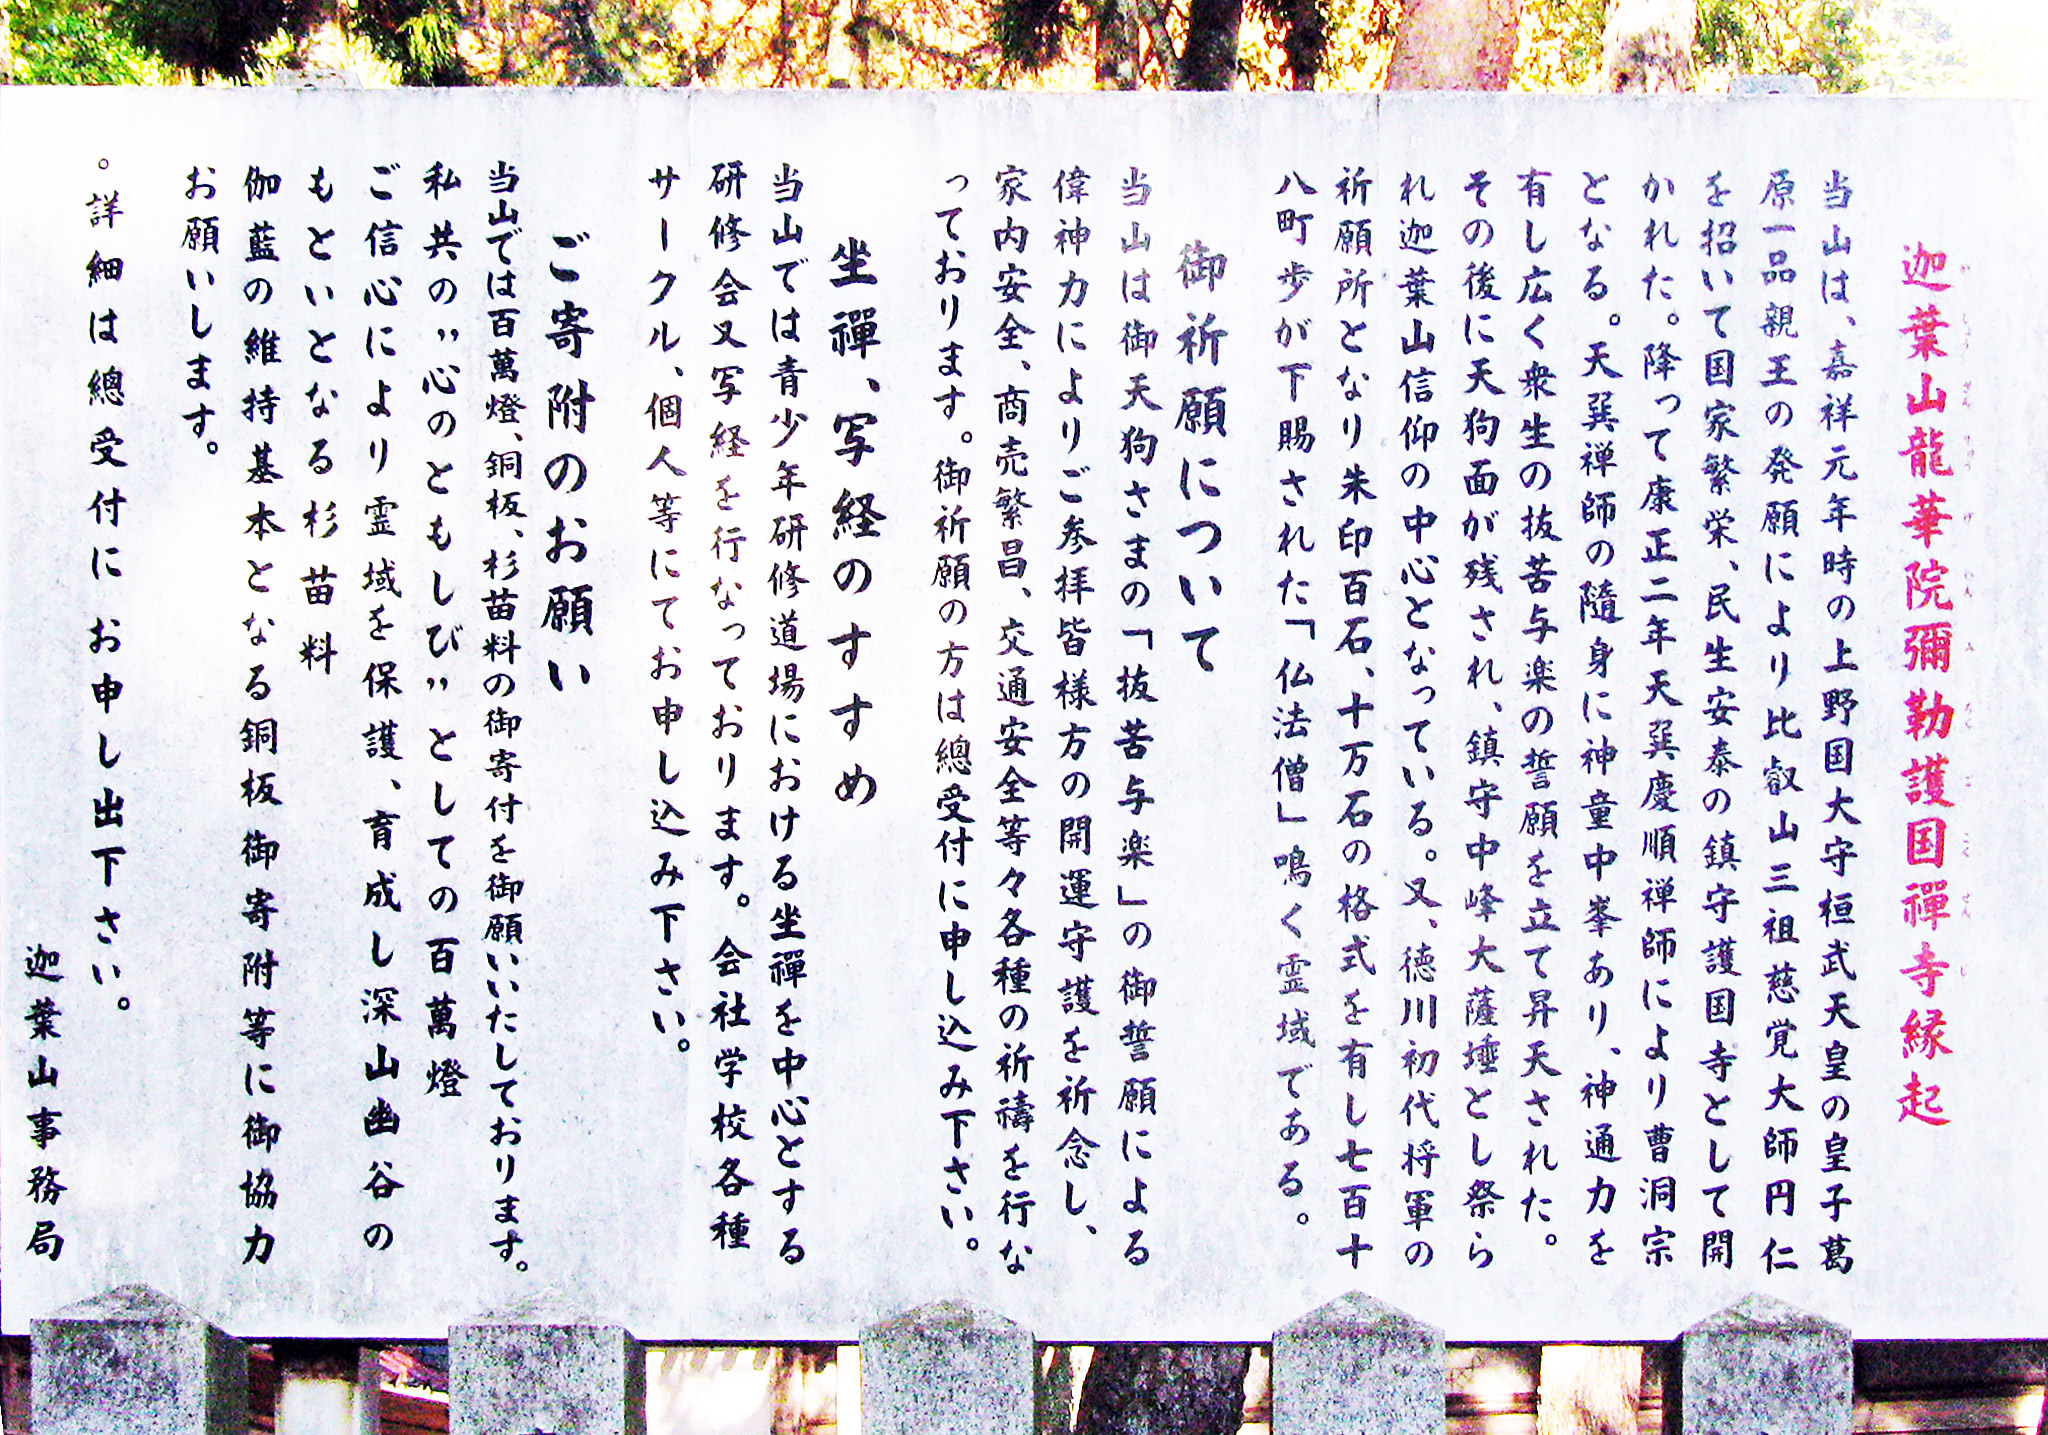 迦葉山龍華院彌勒護国禪寺縁起
当山は、嘉祥元年時の上野国大守桓武天皇の皇子葛
原一品親王の発願により比叡山三祖慈覚大師円仁
を招いて国家繁栄、民生安泰の鎮守護国寺として開
かれた。降って康正二年天巽慶順禅師により曹洞宗
となる。天巽禅師の隨身に神童中峯あり、神通力を
有し広く衆生の抜苦与楽の誓願を立て昇天された。
その後に天狗面が残され、鎮守中峰大薩埵とし祭ら
れ迦葉山信仰の中心となっている。又、徳川初代将軍の
祈願所となり朱印百石、十万石の格式を有し七百十
八町歩が下賜された「仏法僧」鳴く霊域である。
御祈願について
当山は御天狗さまの「抜苦与楽」の御誓願による
偉神力によりご参拝皆様方の開運守護を祈念し、
家内安全、商売繁昌、交通安全等々各種の祈禱を行な
っております。御祈願の方は總受付に申し込み下さい。
坐禪、写経のすすめ
当山では青少年研修道場における坐禪を中心とする
研修会又写経を行なっております。会社学校各種
サークル、個人等にてお申し込み下さい。
ご寄附のお願い
当山では百萬燈、銅板、杉苗料の御寄付を御願いいたしております。
私共の〃心のともしび〃としての百萬燈
ご信心により霊域を保護、育成し深山幽谷の
もといとなる杉苗料
伽藍の維持基本となる銅板御寄附等に御協力
お願いします。
。詳細は總受付にお申し出下さい。
迦葉山事務局